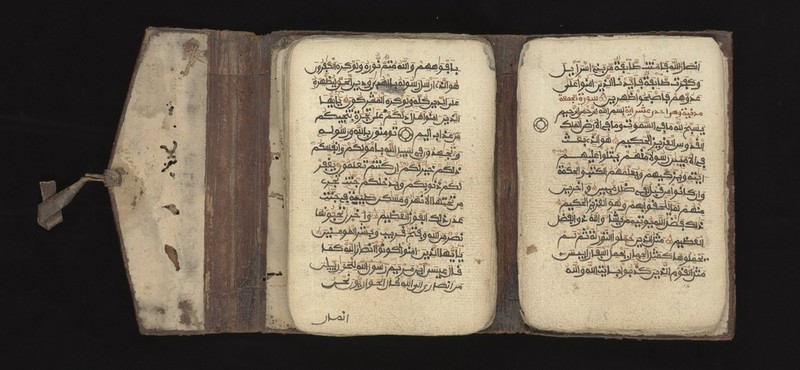 بافوههم والله متم نوره ولو كره الكفرون
هو الذي ارسل رسوله بالهدى ودين الحق ليظهره
على الدين كله ولو كره المشركون يايها
الذين امنوا هل ادلكم على تجرة تنجيكم
من عذاب اليم تومنون بالله ورسوله
وتجهدون في سبيل الله باموالكم وانفسكم
ذلكم خير لكم ان كنتم تعلمون يغفر
لكم ذنوبكم ويدخلكم جنت تجري
من تحتها الانهر ومسكن طيبة في جنت
عدن ذلك الفوز العظيم واخرى تحبونها
نصر من الله وفتح قريب وبشر المومنين
يايها الذين امنوا كونوا انصارا لله كما
قال عيسى ابن مريم للحواريين
من انصاري الى الله قال الحواريون نحن
انصار
انصار الله فامنت طايفة من بني اسراييل
وكفرت طايفة فايدنا الذين امنوا على
عدوهم فاصبحوا ظهرين سورة الجمعة
مدنية وهي احدى عشر اية بسم الله الرحمن الرحيم
يسبح لله ما في السموت وما في الارض الملك
القدوس العزيز الحكيم هو الذي بعث
في الاميين رسولا منهم يتلوا عليهم
ايته ويزكيهم ويعلمهم الكتب والحكمة
وان كانوا من قبل لفي ضلل مبين واخرين
منهم لما يلحقوا بهم وهو العزيز الحكيم
ذلك فضل الله يوتيه من يشا والله ذو الفضل
العظيم مثل الذين حملوا التورية ثم لم
يحملوها كمثل الحمار يحمل اسفارا بيس
مثل القوم الذين كذبوا بايت الله والله